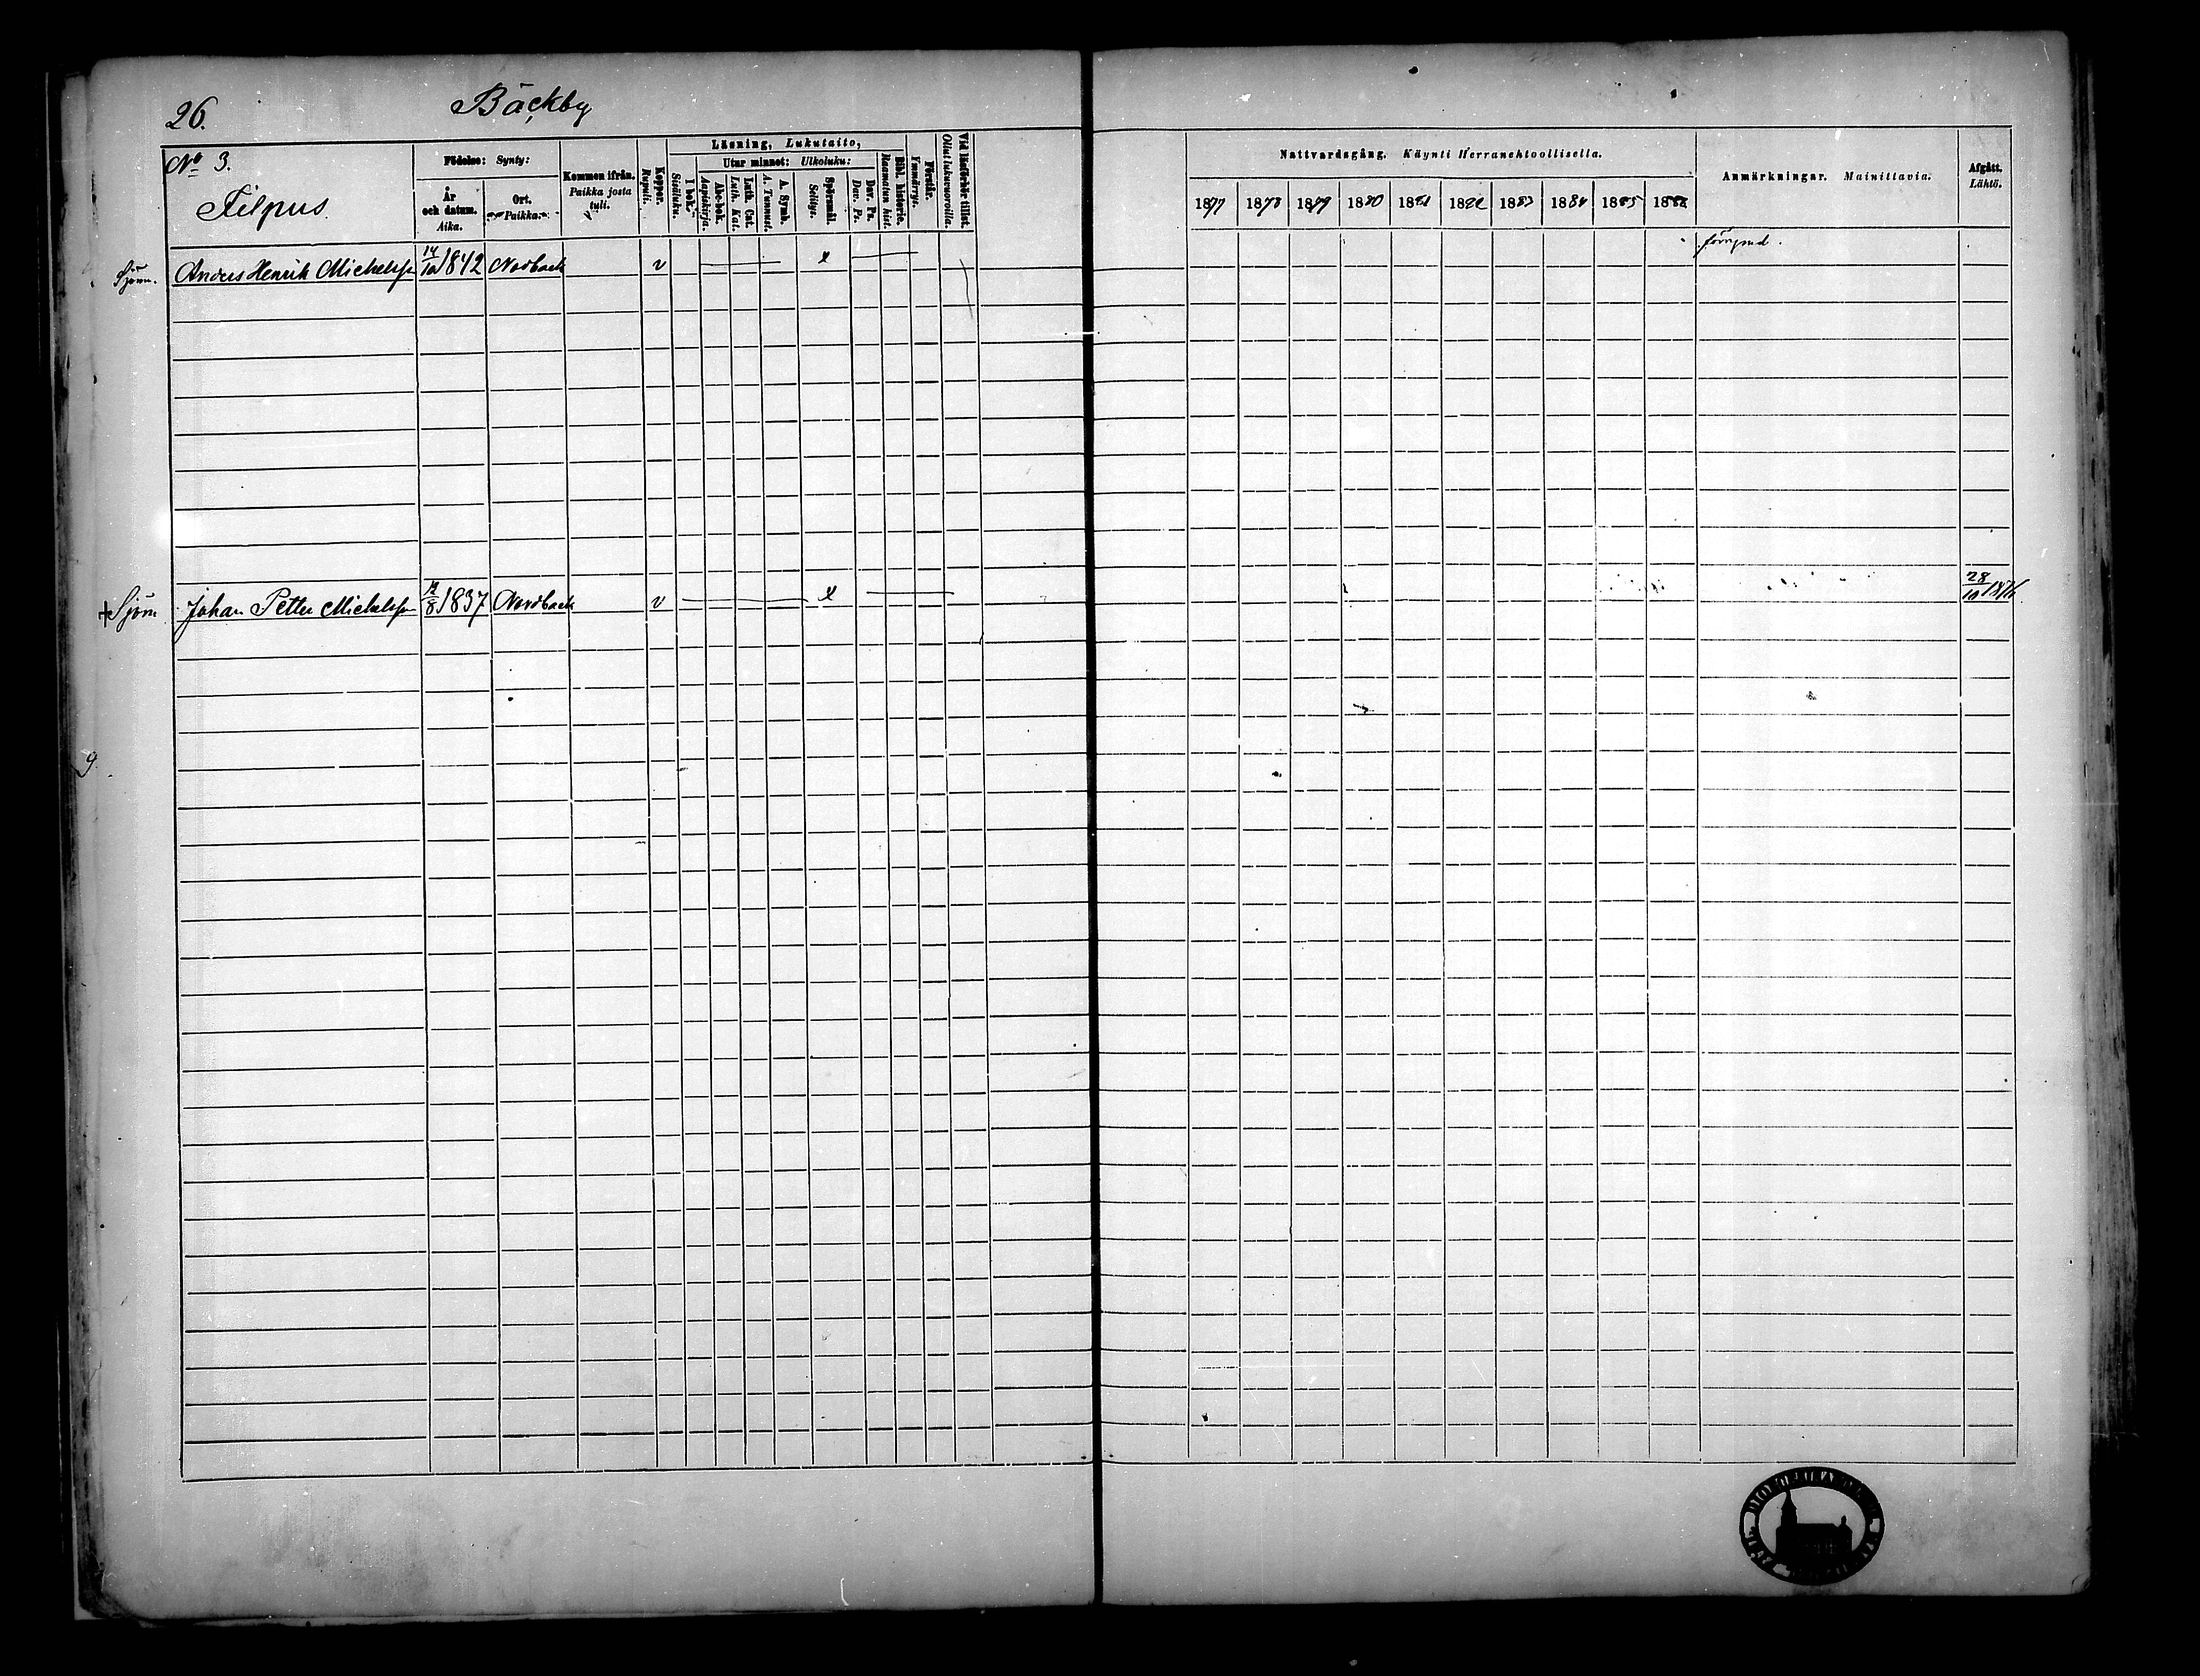 26. Bäckby
No 3.
Filpus.
Födelse: Synty:
År och datum. Aika.
Ort. Paikka.
Kommen ifrån. Paikka josta tuli.
Koppor. Rupuli.
Läsning, Lukutaito,
I bok. Sisäluku.
Utur minnet: Ulkoluku:
Abc-bok. Aapiskirja.
Luth. Cat. Luth. Kat.
A. Symb. A. Tunnust.
Spörsmål. Selitys.
Dav. Ps. Dav. Ps.
Bibl. historie. Raamatun hist.
Förstår. Ymmärrys.
Vid läsförhör tillst. Ollut lukuvuoroilla.
Nattvardsgång. Käynti Herranehtoollisella.
1877 1878 1879 1880 1881 1882 1883 1884 1885
Anmärkningar. Mainittavia.
Afgått. Lähtö.
Sjöm. Anders Henrik Michelss 14/10 1842 Nordback v x
+ Sjöm Johan Petter Michelss 1837 Nordback v x 28/10 1876.
9.